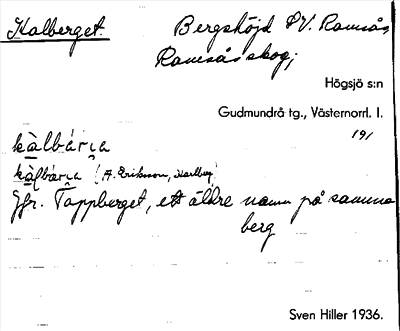 Kalberget. Bergshöjd SV. Ramsås,
Ramsås skog;
Högsjö s:n
Gudmundrå tg., Västernorrl. l.
191
kàlbárɩa
kàlbárɩa (A. Eriksson, Karlberg)
Jfr. Täppberget, ett äldre namn på samma
berg
Sven Hiller 1936.